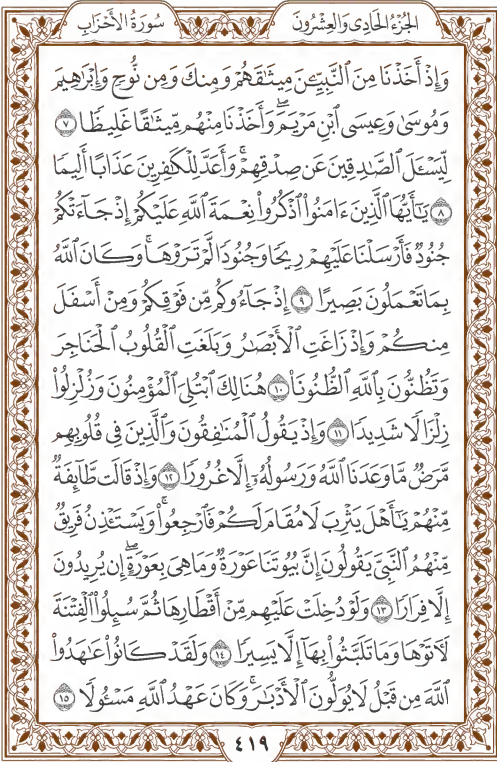 الجُزْءُ الحَادِي وَالعِشْرُونَ
سُورَةُ الأَحْزَابِ
وَإِذْ أَخَذْنَا مِنَ ٱلنَّبِيِّـۧنَ مِيثَٰقَهُمْ وَمِنكَ وَمِن نُّوحٍ وَإِبْرَٰهِيمَ
وَمُوسَىٰ وَعِيسَى ٱبْنِ مَرْيَمَۖ وَأَخَذْنَا مِنْهُم مِّيثَٰقًا غَلِيظًا ٧
لِّيَسْـَٔلَ ٱلصَّٰدِقِينَ عَن صِدْقِهِمْۚ وَأَعَدَّ لِلْكَٰفِرِينَ عَذَابًا أَلِيمًا
٨ يَٰٓأَيُّهَا ٱلَّذِينَ ءَامَنُوا۟ ٱذْكُرُوا۟ نِعْمَةَ ٱللَّهِ عَلَيْكُمْ إِذْ جَآءَتْكُمْ
جُنُودٌ فَأَرْسَلْنَا عَلَيْهِمْ رِيحًا وَجُنُودًا لَّمْ تَرَوْهَاۚ وَكَانَ ٱللَّهُ
بِمَا تَعْمَلُونَ بَصِيرًا ٩ إِذْ جَآءُوكُم مِّن فَوْقِكُمْ وَمِنْ أَسْفَلَ
مِنكُمْ وَإِذْ زَاغَتِ ٱلْأَبْصَٰرُ وَبَلَغَتِ ٱلْقُلُوبُ ٱلْحَنَاجِرَ
وَتَظُنُّونَ بِٱللَّهِ ٱلظُّنُونَا۠ ١٠ هُنَالِكَ ٱبْتُلِيَ ٱلْمُؤْمِنُونَ وَزُلْزِلُوا۟
زِلْزَالًا شَدِيدًا ١١ وَإِذْ يَقُولُ ٱلْمُنَٰفِقُونَ وَٱلَّذِينَ فِى قُلُوبِهِم
مَّرَضٌ مَّا وَعَدَنَا ٱللَّهُ وَرَسُولُهُۥٓ إِلَّا غُرُورًا ١٢ وَإِذْ قَالَت طَّآئِفَةٌ
مِّنْهُمْ يَٰٓأَهْلَ يَثْرِبَ لَا مُقَامَ لَكُمْ فَٱرْجِعُوا۟ۚ وَيَسْتَـْٔذِنُ فَرِيقٌ
مِّنْهُمُ ٱلنَّبِىَّ يَقُولُونَ إِنَّ بُيُوتَنَا عَوْرَةٌ وَمَا هِىَ بِعَوْرَةٍۖ إِن يُرِيدُونَ
إِلَّا فِرَارًا ١٣ وَلَوْ دُخِلَتْ عَلَيْهِم مِّنْ أَقْطَارِهَا ثُمَّ سُئِلُوا۟ ٱلْفِتْنَةَ
لَـَٔاتَوْهَا وَمَا تَلَبَّثُوا۟ بِهَآ إِلَّا يَسِيرًا ١٤ وَلَقَدْ كَانُوا۟ عَٰهَدُوا۟
ٱللَّهَ مِن قَبْلُ لَا يُوَلُّونَ ٱلْأَدْبَٰرَۚ وَكَانَ عَهْدُ ٱللَّهِ مَسْـُٔولًا ١٥
٤١٩